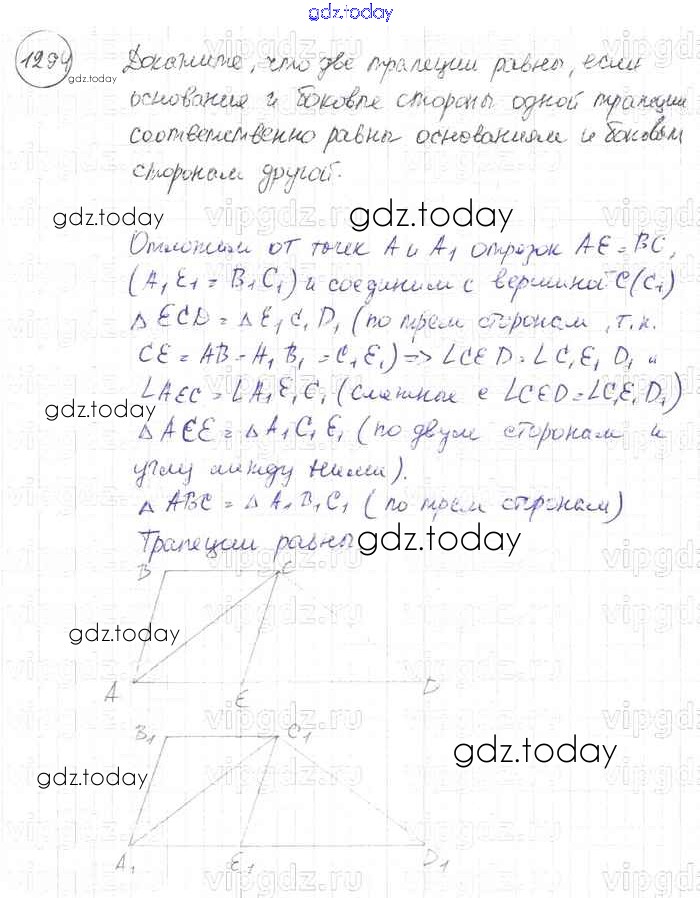 gdz.today
1294
Докажите, что две трапеции равны, если
основания и боковые стороны одной трапеции
соответственно равны основаниям и боковым
сторонам другой.
Отложим от точек A и A1 отрезок AE = BC,
(A1E1 = B1C1) и соединим с вершиной C(C1)
△ ECD = △ E1C1D1 (по трем сторонам, т.к.
CE = AB = A1B1 = C1E1) => ∠CED = ∠C1E1D1 и
∠AEC = ∠A1E1C1 (смежные с ∠CED = ∠C1E1D1)
△ ACE = △ A1C1E1 (по двум сторонам и
углу между ними).
△ ABC = △ A1B1C1 (по трем сторонам)
Трапеции равны
B C
A E D
B1 C1
A1 E1 D1
gdz.today
gdz.today
gdz.today
gdz.today
gdz.today
gdz.today
gdz.today
gdz.today
vipgdz.ru
vipgdz.ru
vipgdz.ru